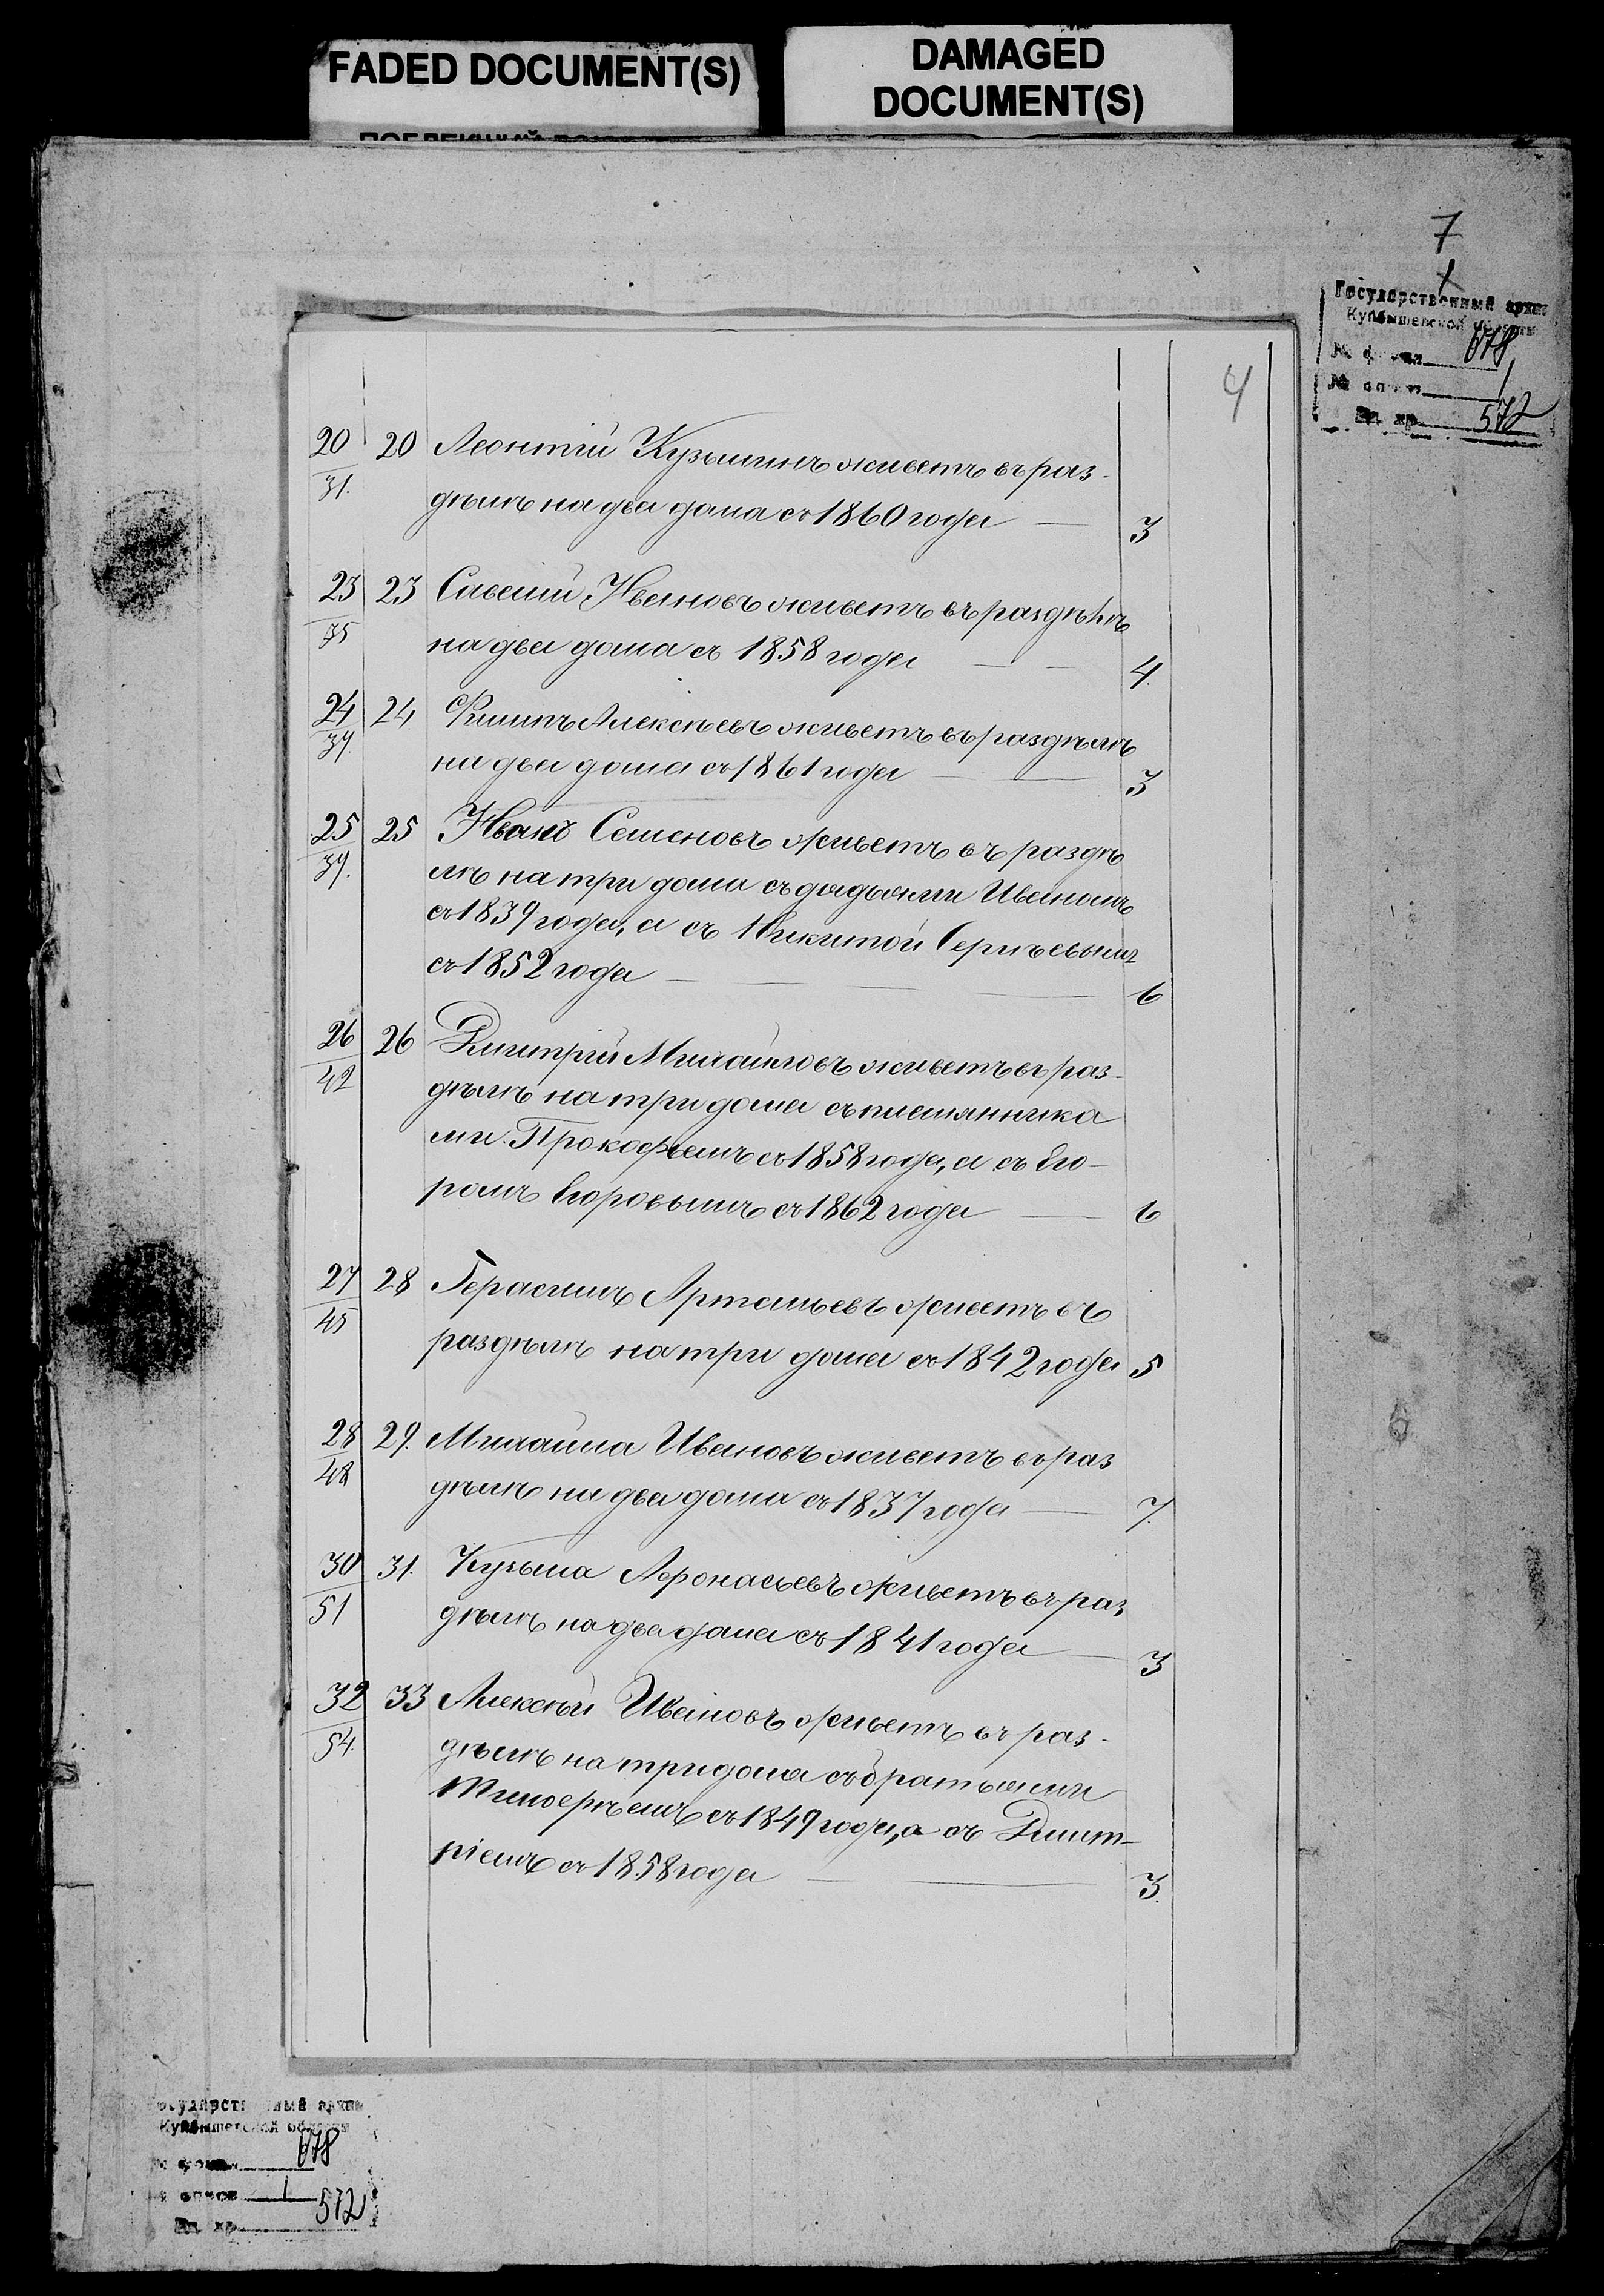 FADED DOCUMENT(S)
DAMAGED
DOCUMENT(S)
7
Государственный архив
Куйбышевской области
№ фонда 678
№ описи 1
Ед. хр. 572
4
20/31. 20 Леонтій Кузьминъ живетъ въ раз-
дѣлѣ на два дома съ 1860 года — 3
23/35 23 Савелій Ивановъ живетъ въ раздѣлѣ
на два дома съ 1858 года — 4.
24/37. 24 Филипъ Алексѣевъ живетъ въ раздѣлѣ
на два дома съ 1861 года — 3
25/39. 25 Иванъ Семеновъ живетъ въ раздѣ
лѣ на три дома съ дядьями Иваномъ
съ 1839 года, а съ Никитой Сергѣевымъ
съ 1852 года — 6
26/42 26 Дмитрій Михайловъ живетъ въ раз-
дѣлѣ на три дома съ племянника
ми Прокофьемъ съ 1858 года, а съ Его-
ромъ Егоровымъ съ 1862 года — 6
27/45 28 Герасимъ Артамьевъ живетъ въ
раздѣлѣ на три дома съ 1842 года 5
28/48 29. Михайла Ивановъ живетъ въ раз
дѣлѣ на два дома съ 1837 года — 7.
30/51 31. Кузьма Афонасьевъ живетъ въ раз
дѣлѣ на два дома съ 1841 года — 3
32/54. 33 Алексѣй Ивановъ живетъ въ раз-
дѣлѣ на три дома съ братьями
Тимофеѣемъ съ 1849 года, а съ Дмит-
ріемъ съ 1858 года — 3.
Государственный архив
Куйбышевской области
№ фонда 678
№ описи 1
Ед. хр. 572